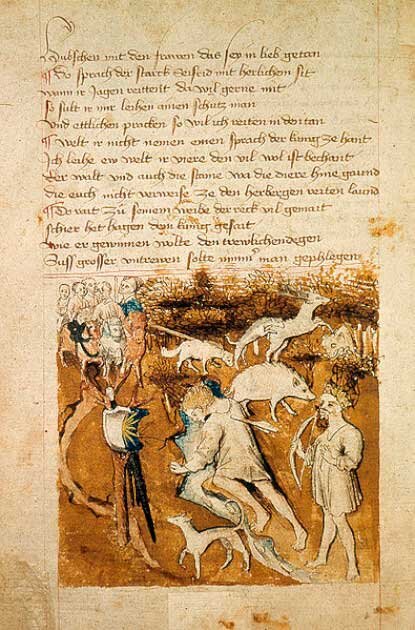 Hubschen mit den frawen das sey in lieb getan
Do sprach der starck Seifrid mit herlichem sit
wann ir Jagen reittent da wil gerne mit
So sult ir mir leihen ainen schutz man
Vnd ettlichen pracken so wil ich reiten in den tan
Welt ir nicht nemen ainen sprach der kunig ze hant
Ich leihe ew welt ir viere den vil wol ist bechant
Der walt vnd auch die staine wa die diere hine gaund
die euch nicht verweise ze den herbergen reiten laund
Do rait zu seinem weibe der reck vil gemait
schier het hagen dem kunig gesait
wie er gewinnen wolte den trewlichen degen
Suss grosser vntrewen solte nimmer man gephlegen